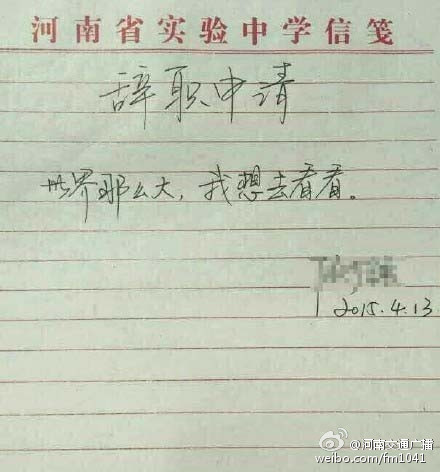 河南省实验中学信笺
辞职申请
世界那么大，我想去看看。
2015.4.13
@河南交通广播
weibo.com/fm1041